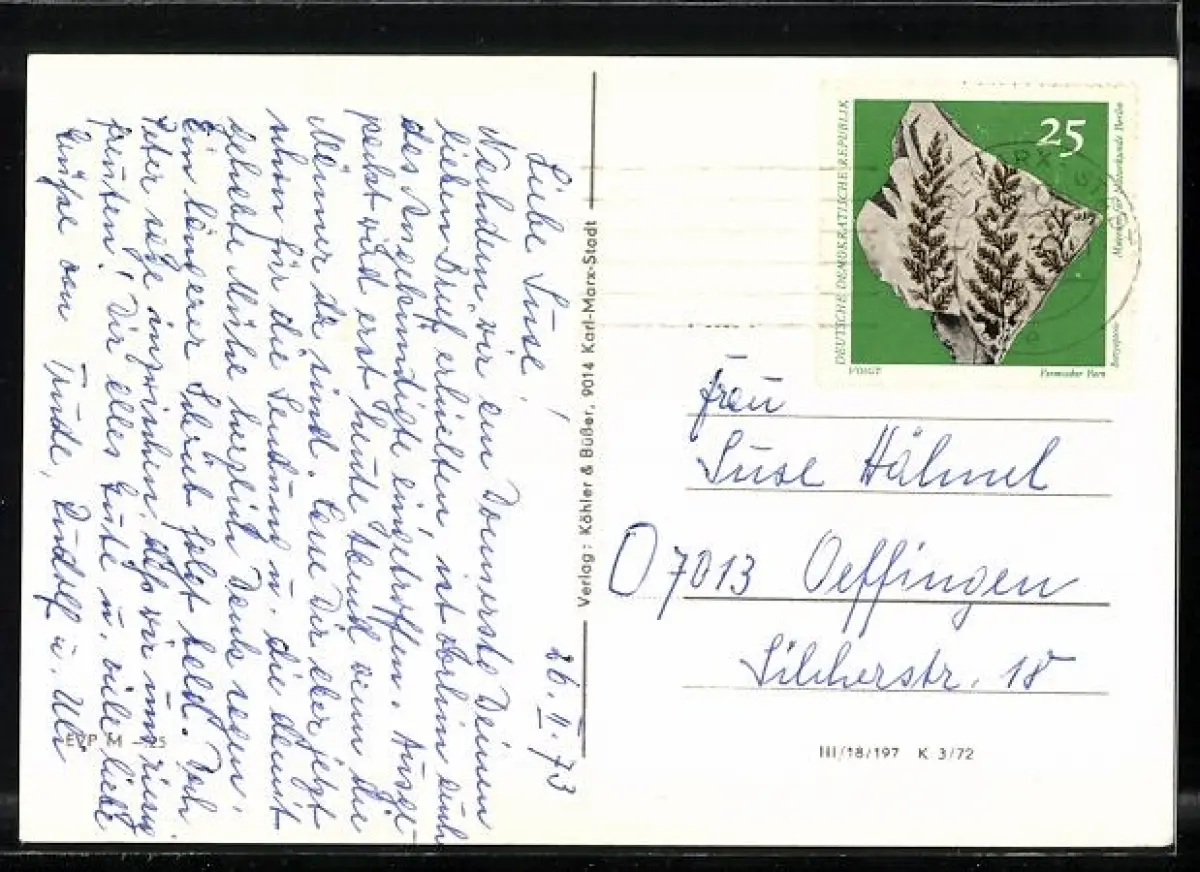 26. II. 73
Liebe Suse!
Nachdem wir am Donnerstag Deinen
lieben Brief erhielten, ist vorhin auch
das Angekündigte eingetroffen. Ausge-
packt wird erst heute Abend wenn die
Männer da sind. Lass Dir aber jetzt
schon für die Sendung u. die damit
gehabte Mühe herzlich Dank sagen.
Ein längerer Schrieb folgt bald. Doch
Peter sagte inzwischen, daß wir uns riesig
freuten! Dir alles Gute u. viele liebe
Grüße von Trude, Rudolf u. Uli
EVP M –.25
Verlag: Köhler & Büßer, 9014 Karl-Marx-Stadt
DEUTSCHE DEMOKRATISCHE REPUBLIK
25
Museum für Naturkunde Berlin
VOIGT
Farnsamer
Frau
Suse Hähnel
7013 Oeffingen
Silcherstr. 18
III/18/197 K 3/72